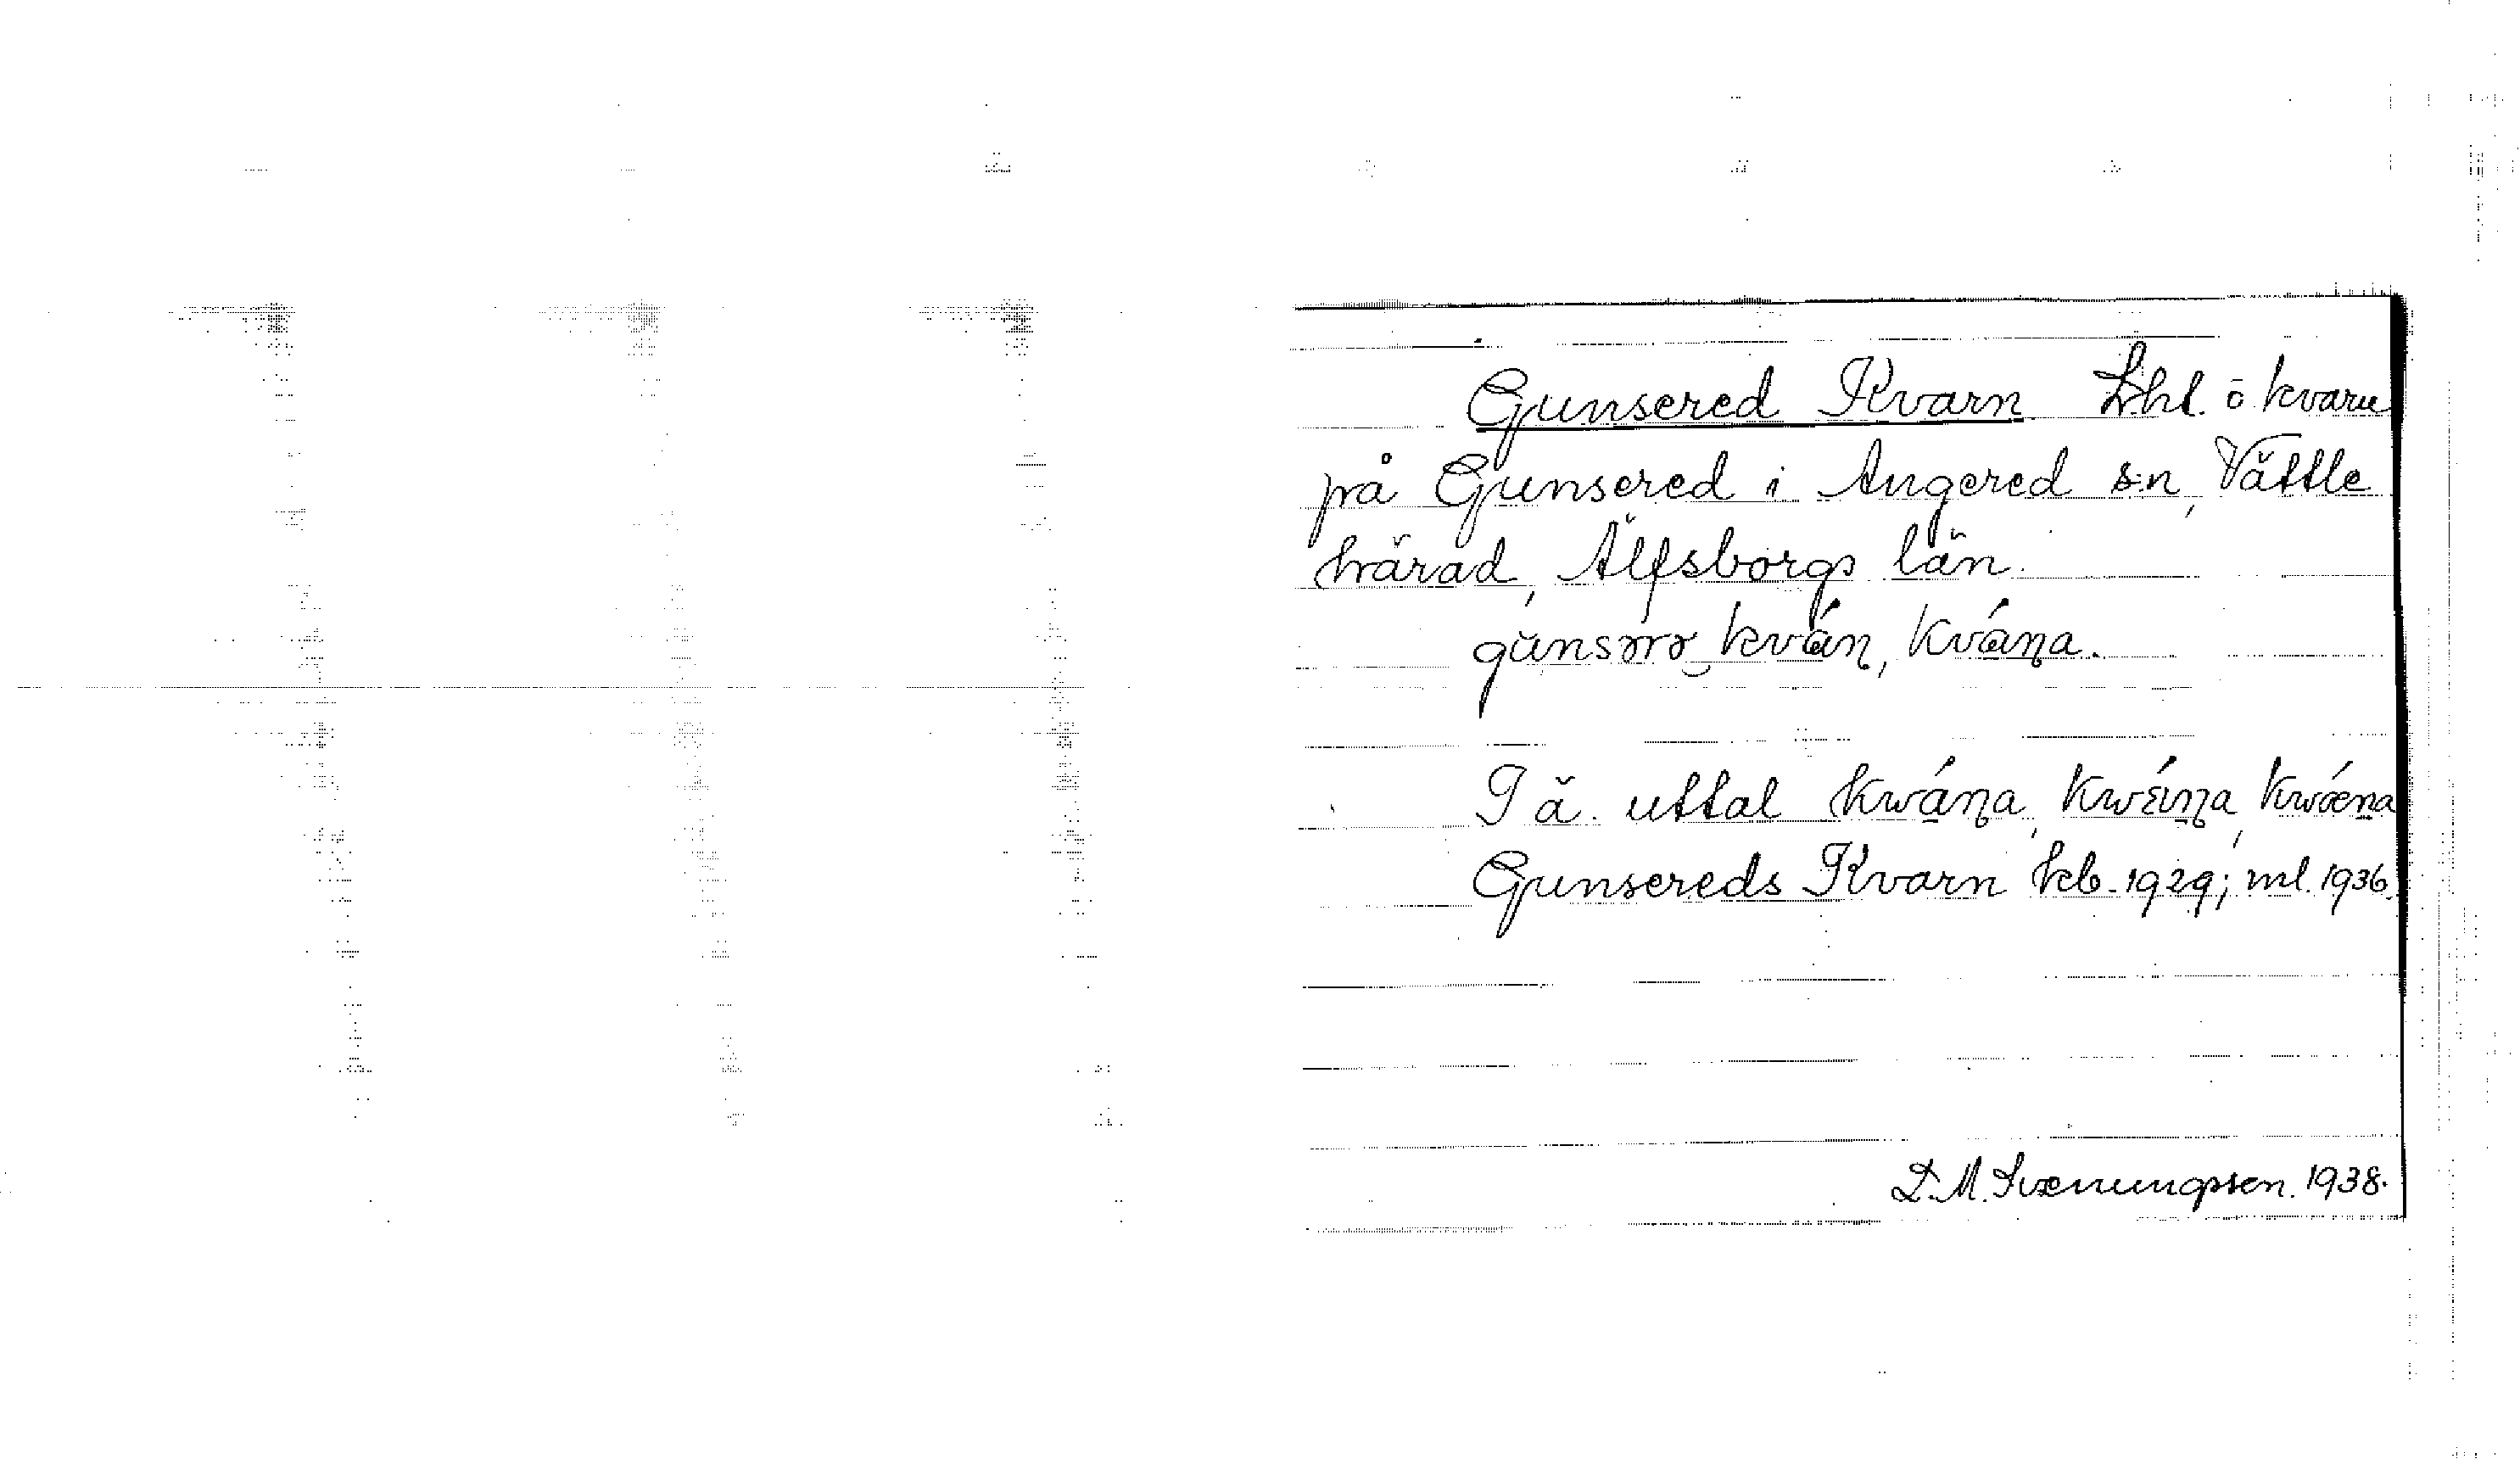 Gunsered Kvarn Lhl. o kvarn
på Gunsered i Angered s:n, Vättle
härad, Älfsborgs län.
gunsərə kván, kvána.
I ä. uttal kwána, kwéɩna, kwǽna
Gunsereds Kvarn kb. 1929; ml. 1936.
D. M. Svenungssen. 1938.